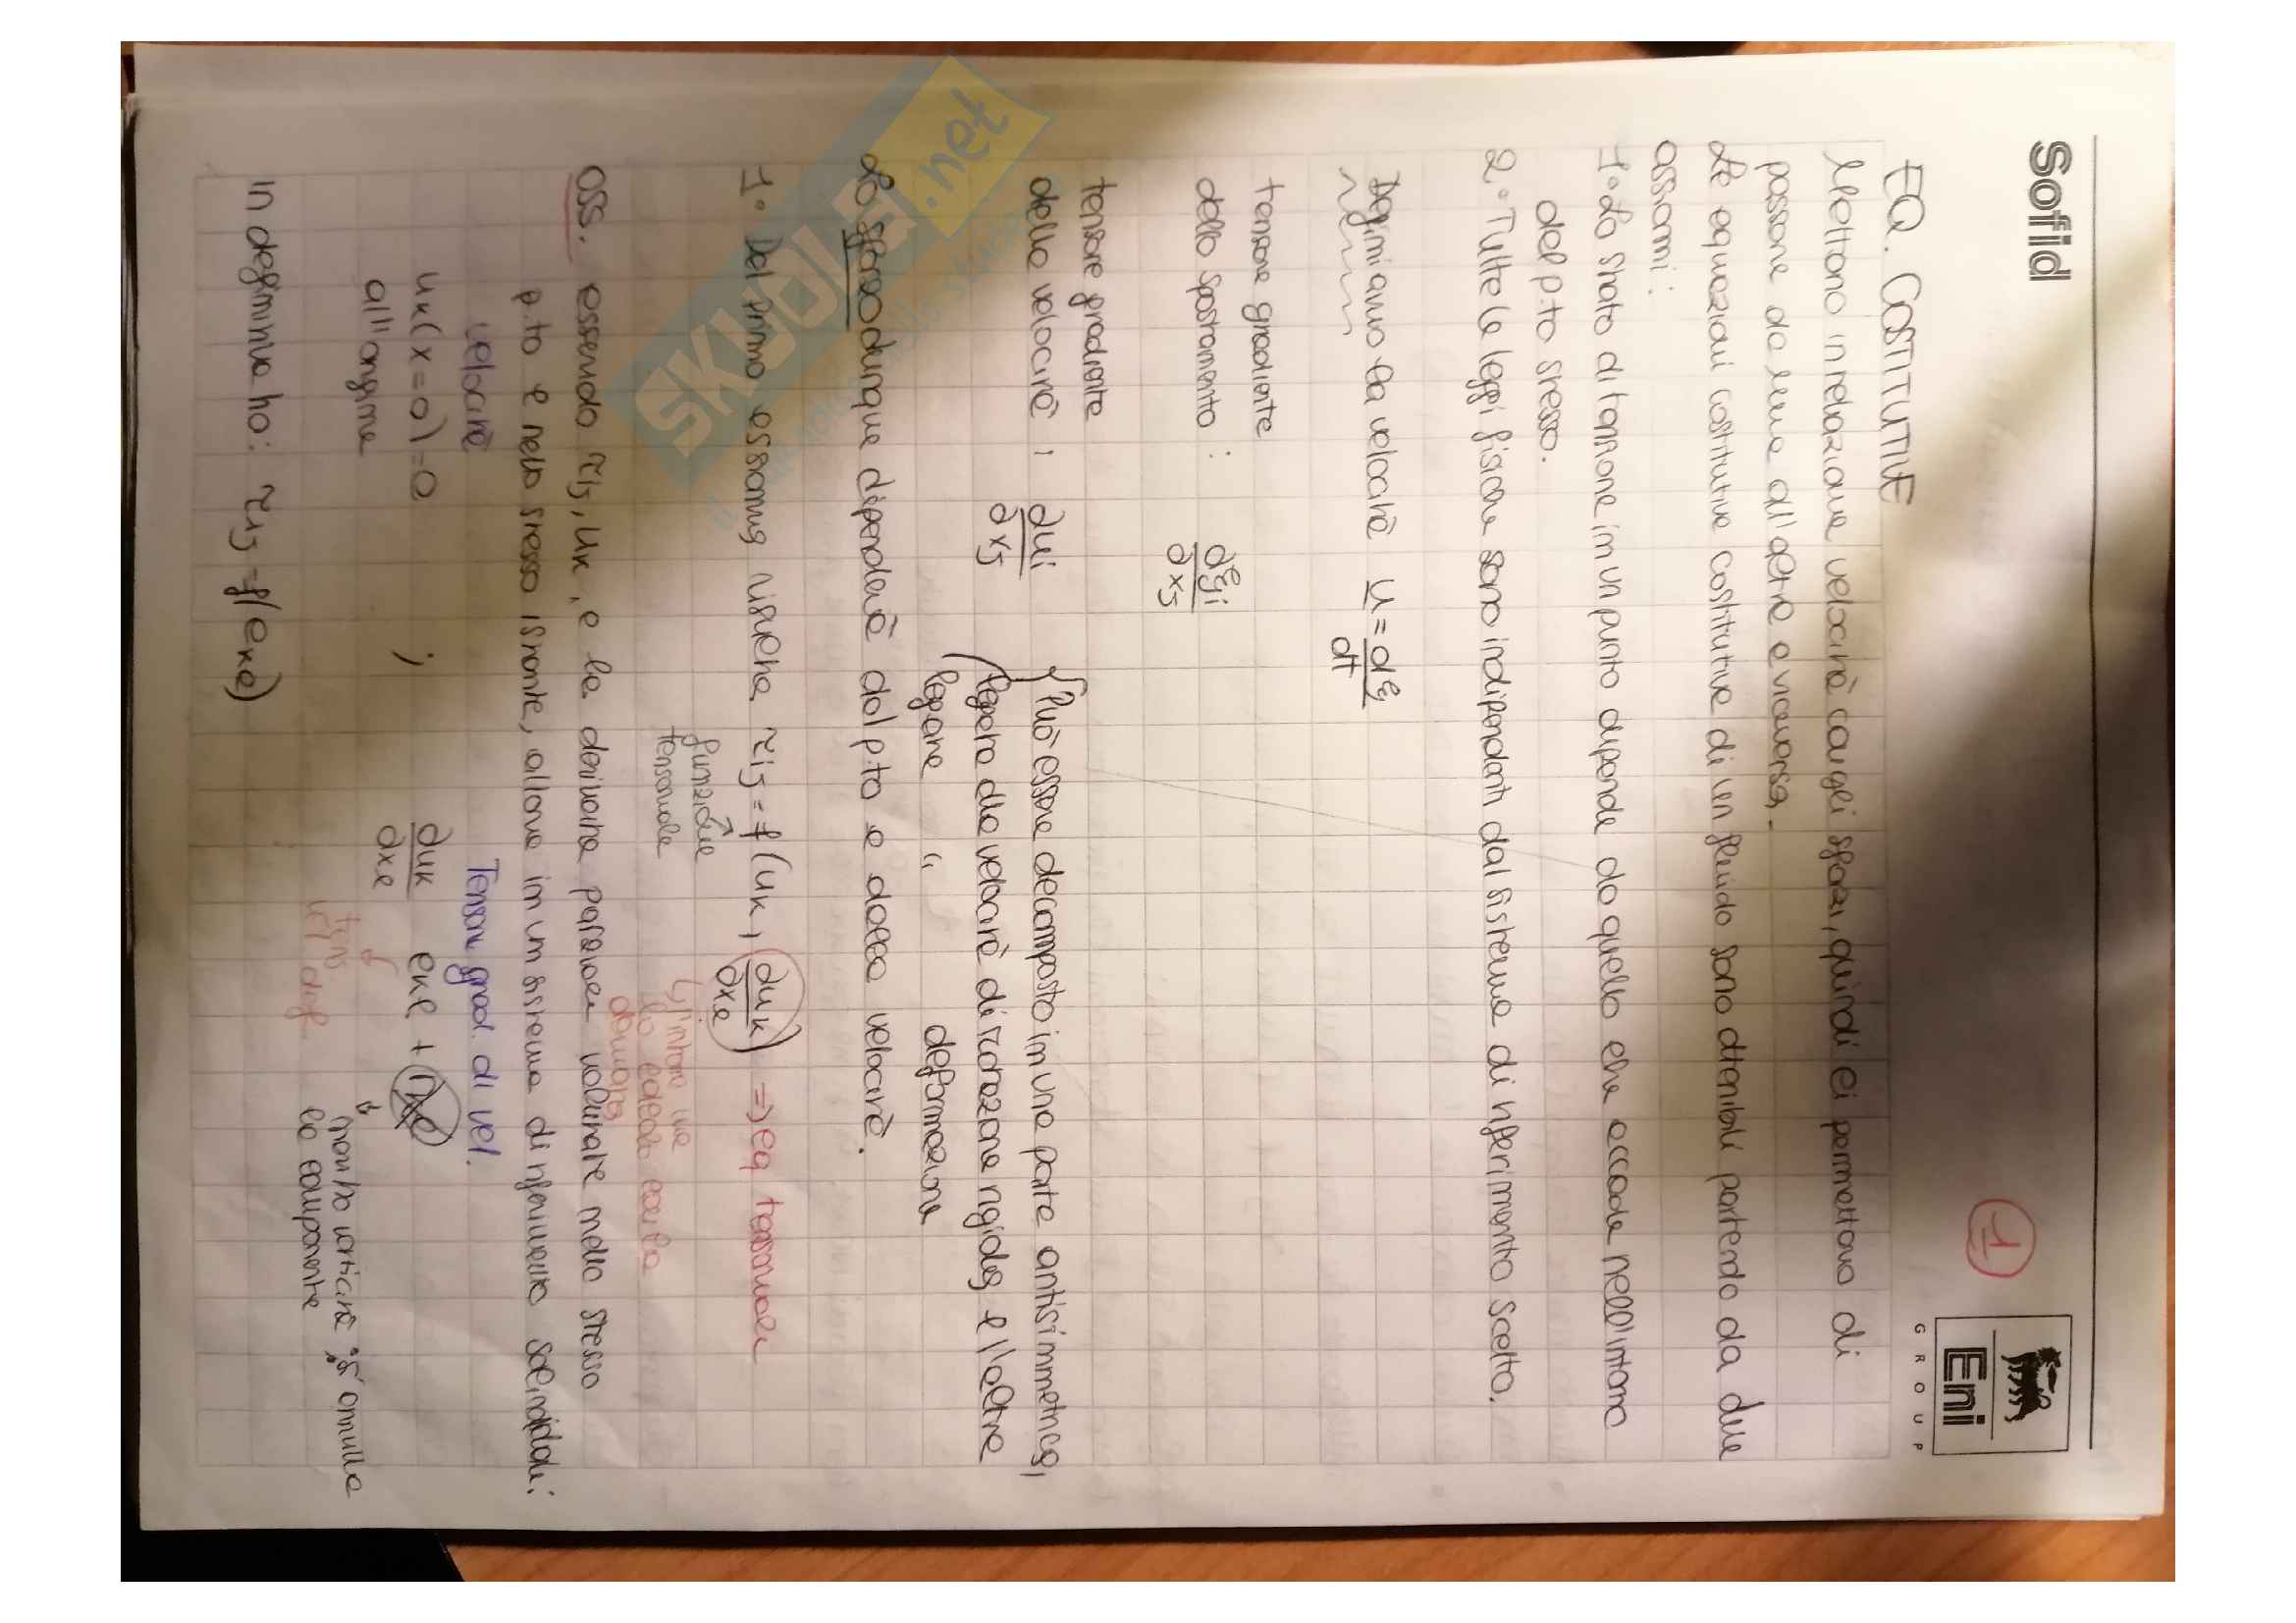 Sofid
1
Eni
GROUP
EQ. COSTITUTIVE
Mettono in relazione velocità con gli sforzi, quindi ci permettono di
passare da una all'altra e viceversa.
Le equazioni costitutive costitutive di un fluido sono ottenibili partendo da due
assiomi:
1° Lo stato di tensione in un punto dipende da quello che accade nell'intorno
del p.to stesso.
2° Tutte le leggi fisiche sono indipendenti dal sistema di riferimento scelto.
Definiamo la velocità u = dξ/dt
tensore gradiente
dello spostamento : ∂ξi/∂xj
tensore gradiente
della velocità : ∂ui/∂xj { Può essere decomposto in una parte antisimmetrica,
legata alla velocità di rotazione rigida e l'altra
legare " deformazione
Lo sforzo dunque dipenderà dal p.to e dalla velocità.
1° Dal primo assioma risulta τij = f(uk, ∂uk/∂xl) => eq tensoriale
funzione
tensoriale
↳ l'intorno me
lo calcolo con la
derivata
OSS. essendo τij, uk, e la derivata parziale valutate nello stesso
p.to e nello stesso istante, allora in un sistema di riferimento solidale:
velocità Tensore grad. di vel.
uk(x=0)=0 ; ∂uk/∂xl ekl + rkl
all'origine
tens
vel
non ho vorticità: si annulla
la componente
In definitiva ho: τij = f(ekl)
SKUOLA.net